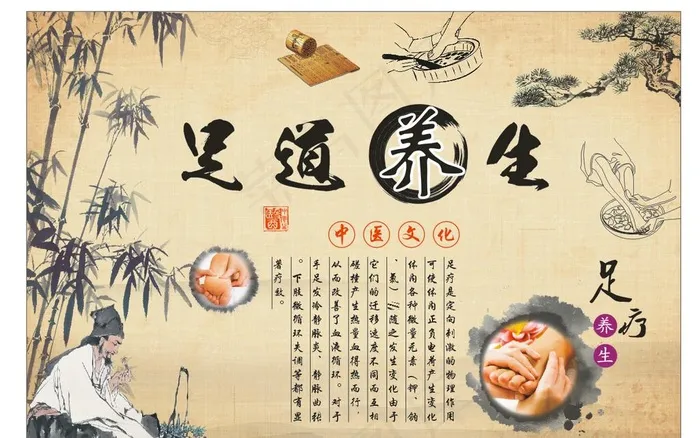 足道养生
中医文化
足疗是定向刺激的物理作用
可使体内正负电荷产生变化
体内各种微量元素（钾、钠
、氯）///随之发生变化由于
它们的迁移速度不同而互相
碰撞产生热量血得热而行，
从而改善了血液循环。对于
手足发冷静脉炎、静脉曲张
。下肢微循环失调等都有显
著疗效。
足疗
养生